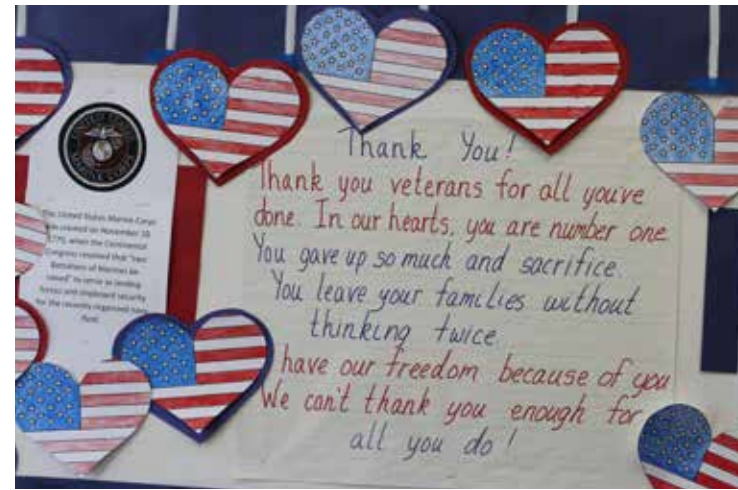 UNITED STATES
MARINE CORPS
The United States Marine Corps
was created on November 10
1775, when the Continental
Congress resolved that "two
Battalions of Marines be
raised" to serve as landing
forces and shipboard security
for the recently organized navy
fleet.
Thank You!
Thank you veterans for all you've
done. In our hearts, you are number one
You gave up so much and sacrifice.
You leave your families without
thinking twice.
have our freedom because of you
We can't thank you enough for
all you do!